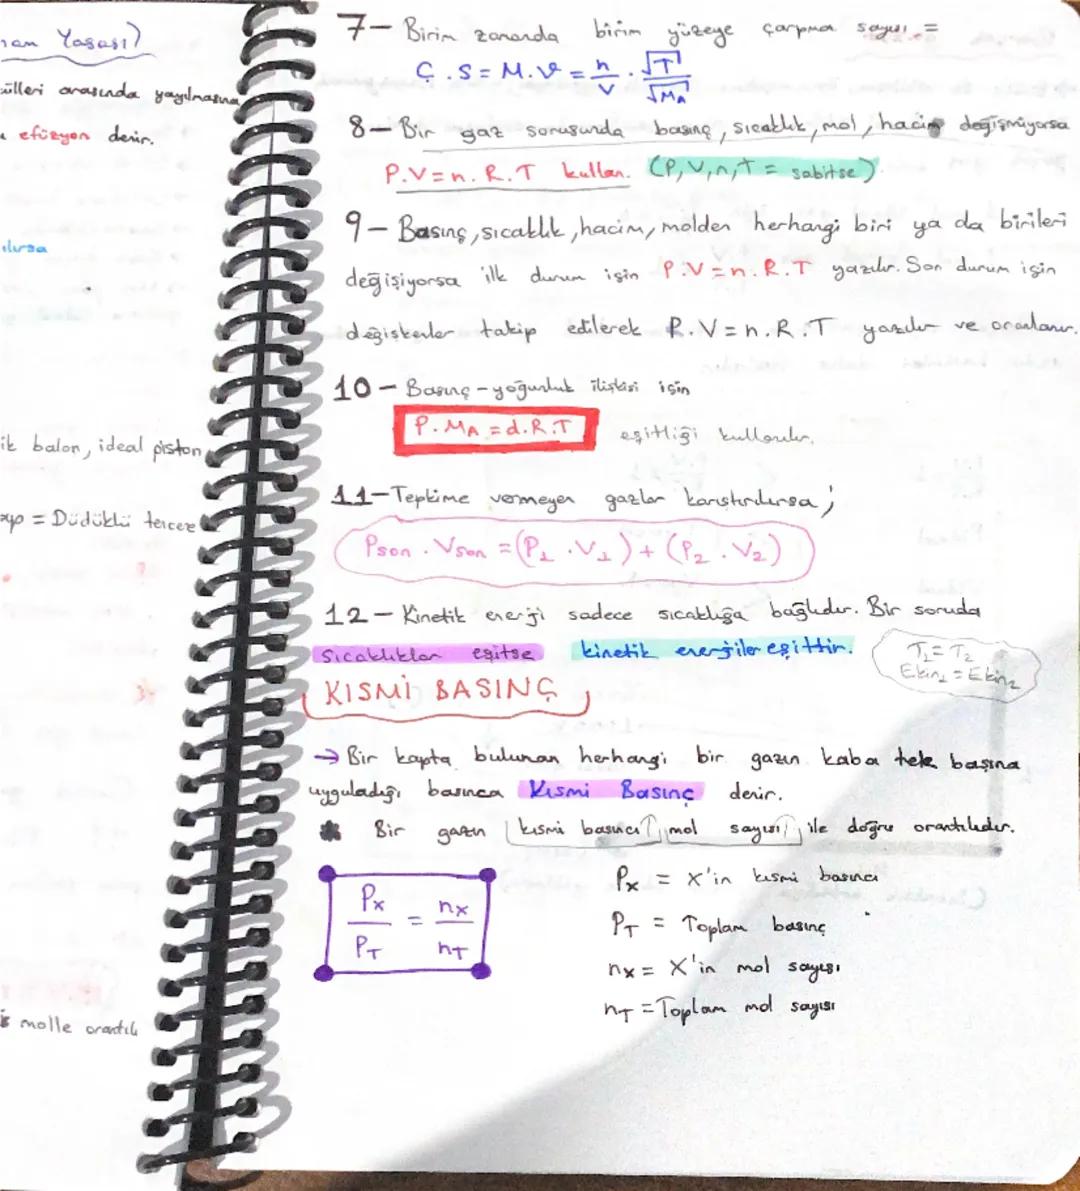 Yasası)
arasında yayılmasına
efüzyon denir.
ılırsa
ik balon, ideal piston
= Düdüklü tencere
molle orantılı
7- Birim zamanda birim yüzeye çarpma sayısı =
Ç.S = M.V = n/V . √T/√MA
8- Bir gaz sorusunda basınç, sıcaklık, mol, hacim değişmiyorsa
P.V=n.R.T kullan. (P,V,n,T = sabitse)
9- Basınç, sıcaklık, hacim, molden herhangi biri ya da birileri
değişiyorsa ilk durum için P.V=n.R.T yazılır. Son durum için
değişkenler takip edilerek P.V=n.R.T yazılır ve oranlanır.
10- Basınç-yoğunluk ilişkisi için
P.MA = d.R.T eşitliği kullanılır.
11- Tepkime vermeyen gazlar karıştırılırsa;
Pson . Vson = (P1 . V1) + (P2 . V2)
12- Kinetik enerji sadece sıcaklığa bağlıdır. Bir soruda
sıcaklıklar eşitse kinetik enerjiler eşittir.
T1 = T2
Ekin1 = Ekin2
KISMİ BASINÇ
→ Bir kapta bulunan herhangi bir gazın kaba tek başına
uyguladığı basınca Kısmi Basınç denir.
* Bir gazın kısmi basıncı↑, mol sayısı↑, ile doğru orantılıdır.
Px/PT = nx/nT
Px = X'in kısmi basıncı
PT = Toplam basınç
nx = X'in mol sayısı
nT = Toplam mol sayısı